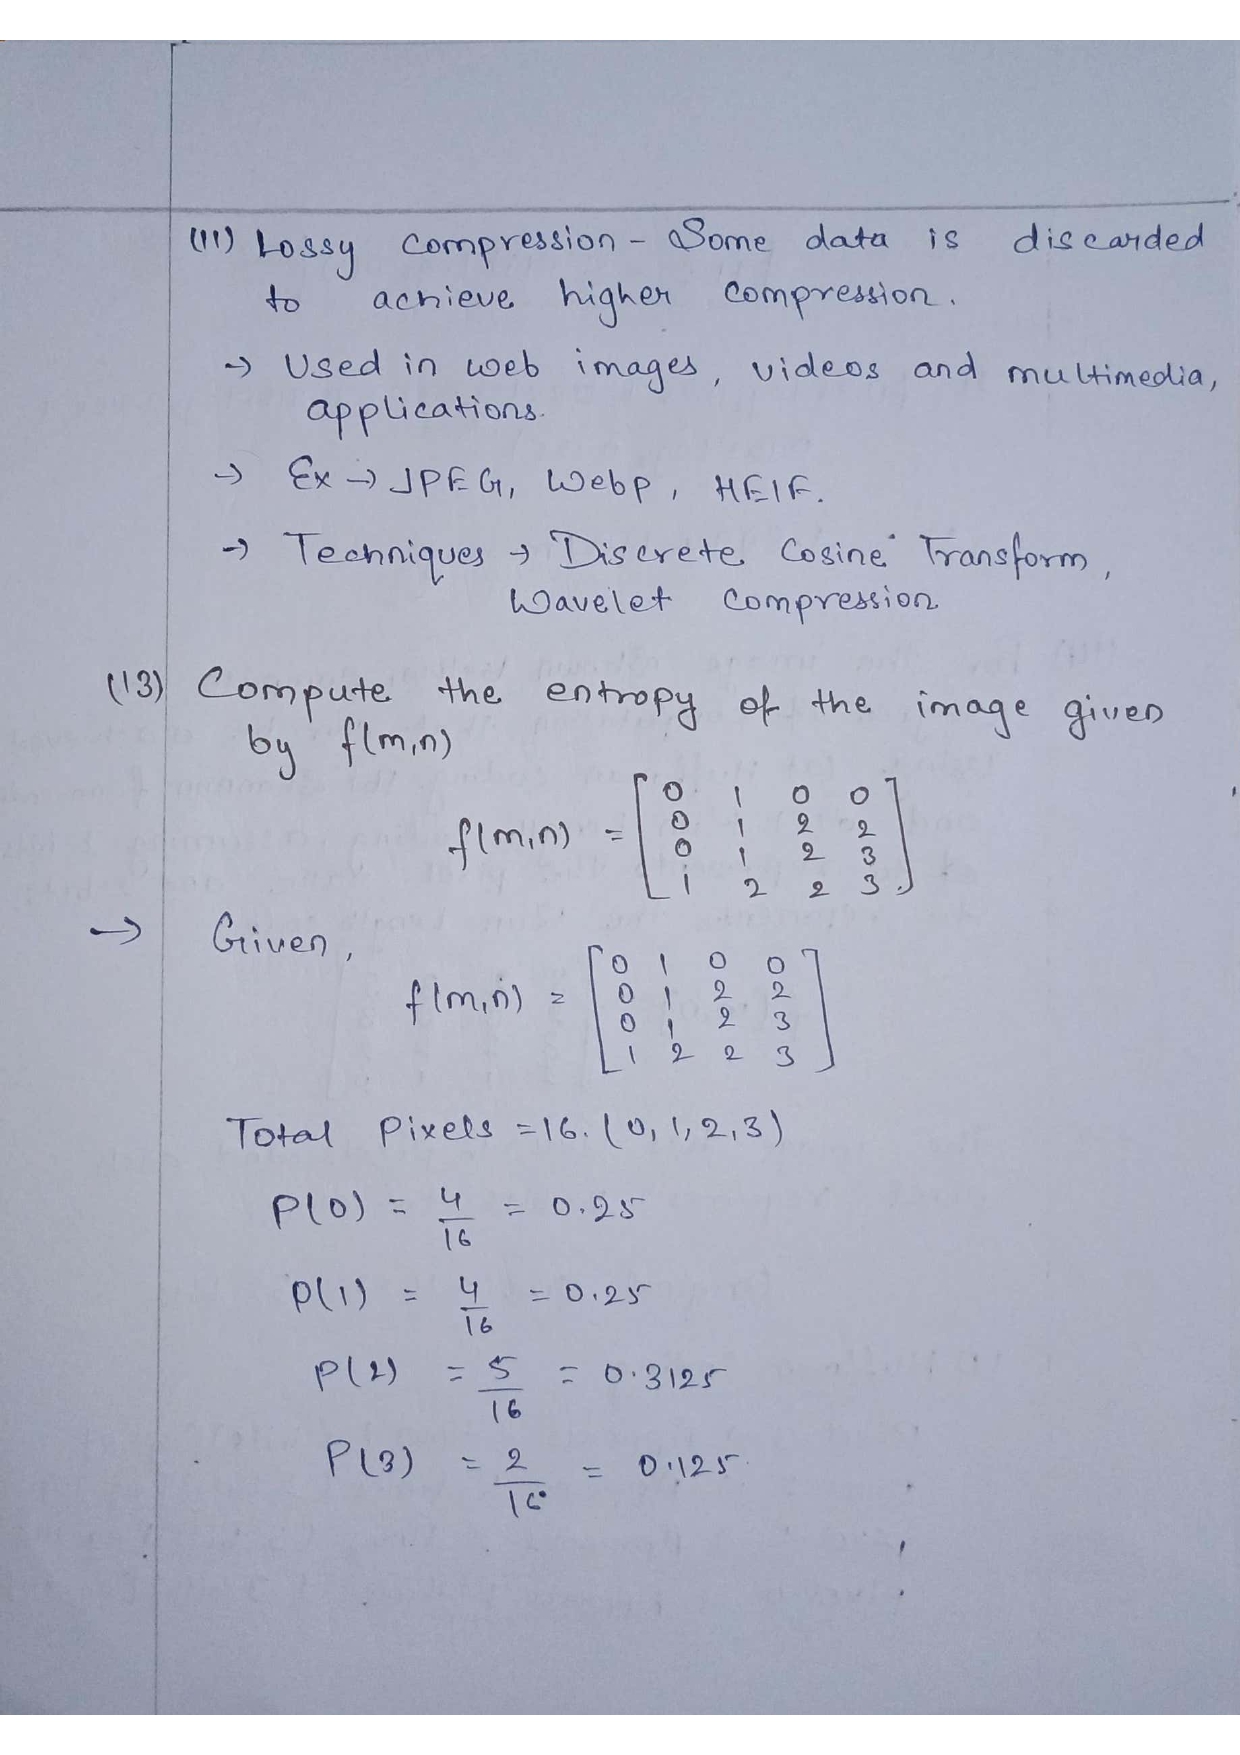 (11) Lossy compression - Some data is discarded
to achieve higher compression.
→ Used in web images, videos and multimedia,
applications.
→ Ex → JPEG, Webp, HEIF.
→ Techniques → Discrete Cosine Transform,
Wavelet compression
(13) Compute the entropy of the image given
by f(m,n)
f(m,n) = [0 1 0 0
0 1 2 2
0 1 2 3
1 2 2 3.]
→ Given,
f(m,n) = [0 1 0 0
0 1 2 2
0 1 2 3
1 2 2 3]
Total Pixels = 16. (0,1,2,3)
P(0) = 4/16 = 0.25
P(1) = 4/16 = 0.25
P(2) = 5/16 = 0.3125
P(3) = 2/16 = 0.125